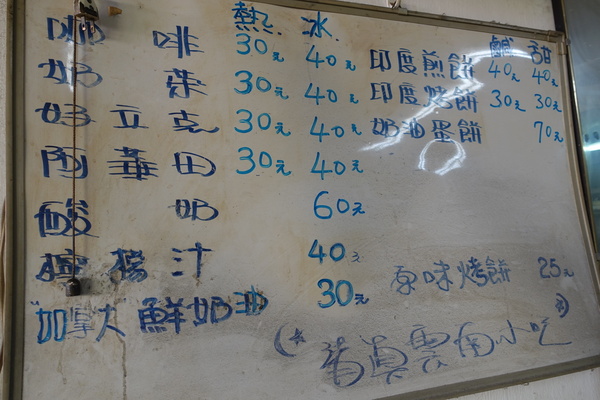 熱 冰
咖啡 30元 40元
奶茶 30元 40元
好立克 30元 40元
阿華田 30元 40元
酸奶 60元
檸檬汁 40元
"加拿大鮮奶油 30元
鹹 甜
印度煎餅 40元 40元
印度烤餅 30元 30元
奶油蛋餅 70元
原味烤餅 25元
雲南小吃